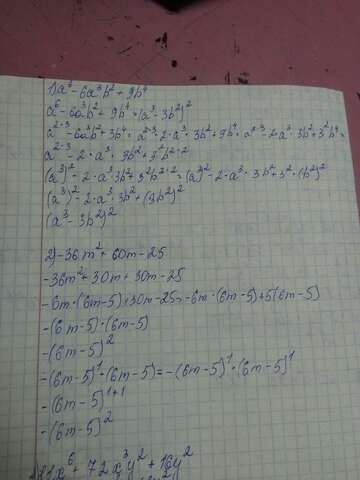 1) a⁶-6a³b²+9b⁴
a⁶-6a³b²+9b⁴=(a³-3b²)²
a²·³-6a³b²+3b⁴=a²·³-2·a³·3b²+9b⁴=a²·³-2·a³·3b²+3²b⁴=
a²·³-2·a³·3b²+3²b²·²
(a³)²-2·a³3b²+3²b²·²=(a³)²-2·a³·3b²+3²·(b²)²
(a³)²-2·a³·3b²+(3b²)²
(a³-3b²)²
2) -36m²+60m-25
-36m²+30m+30m-25
-6m·(6m-5)+30m-25=-6m·(6m-5)+5(6m-5)
-(6m-5)·(6m-5)
-(6m-5)²
-(6m-5)¹·(6m-5)=-(6m-5)¹·(6m-5)¹
-(6m-5)¹⁺¹
-(6m-5)²
x⁶+72x³y²+16y²